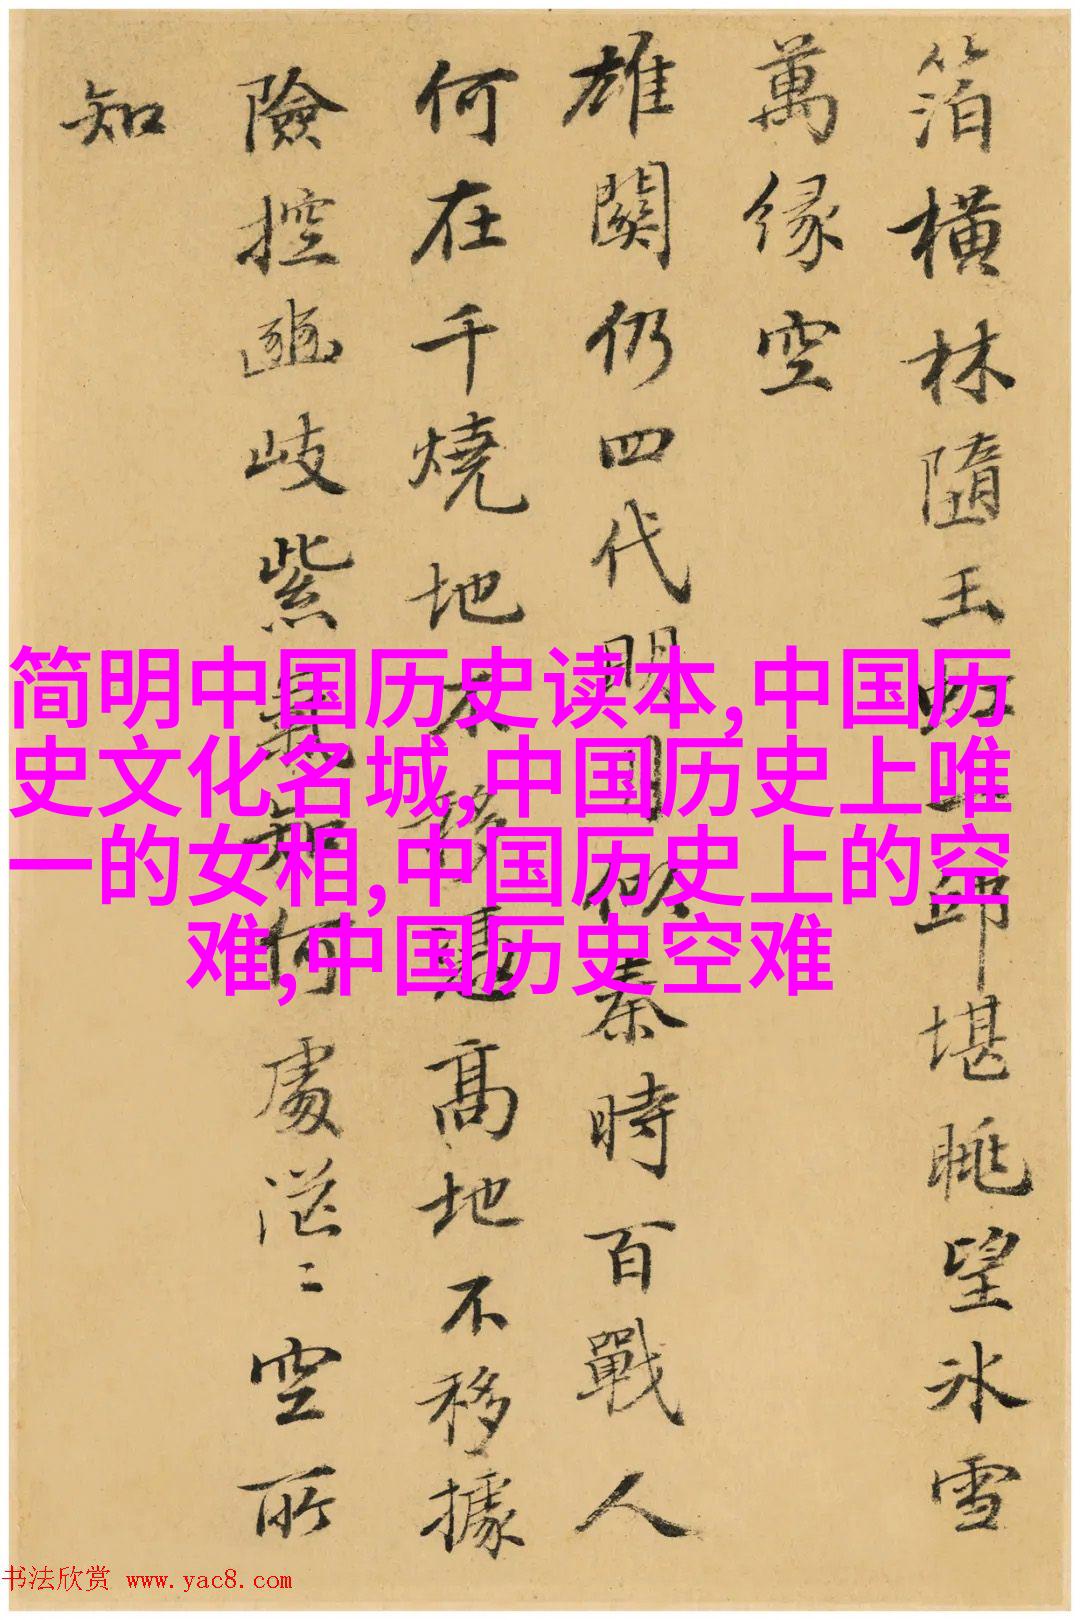 箔橫林隨玉虹上卭堪眺望冰雪
萬緣空
雄關仍四代明月似秦時百戰人
何在千燒地本移憑高地不移據
險控豳岐紫氣知何處茫〻空所
知
简明中国历史读本,中国历
史文化名城,中国历史上唯
一的女相,中国历史上的空
难,中国历史空难
书法欣赏 www.yac8.com